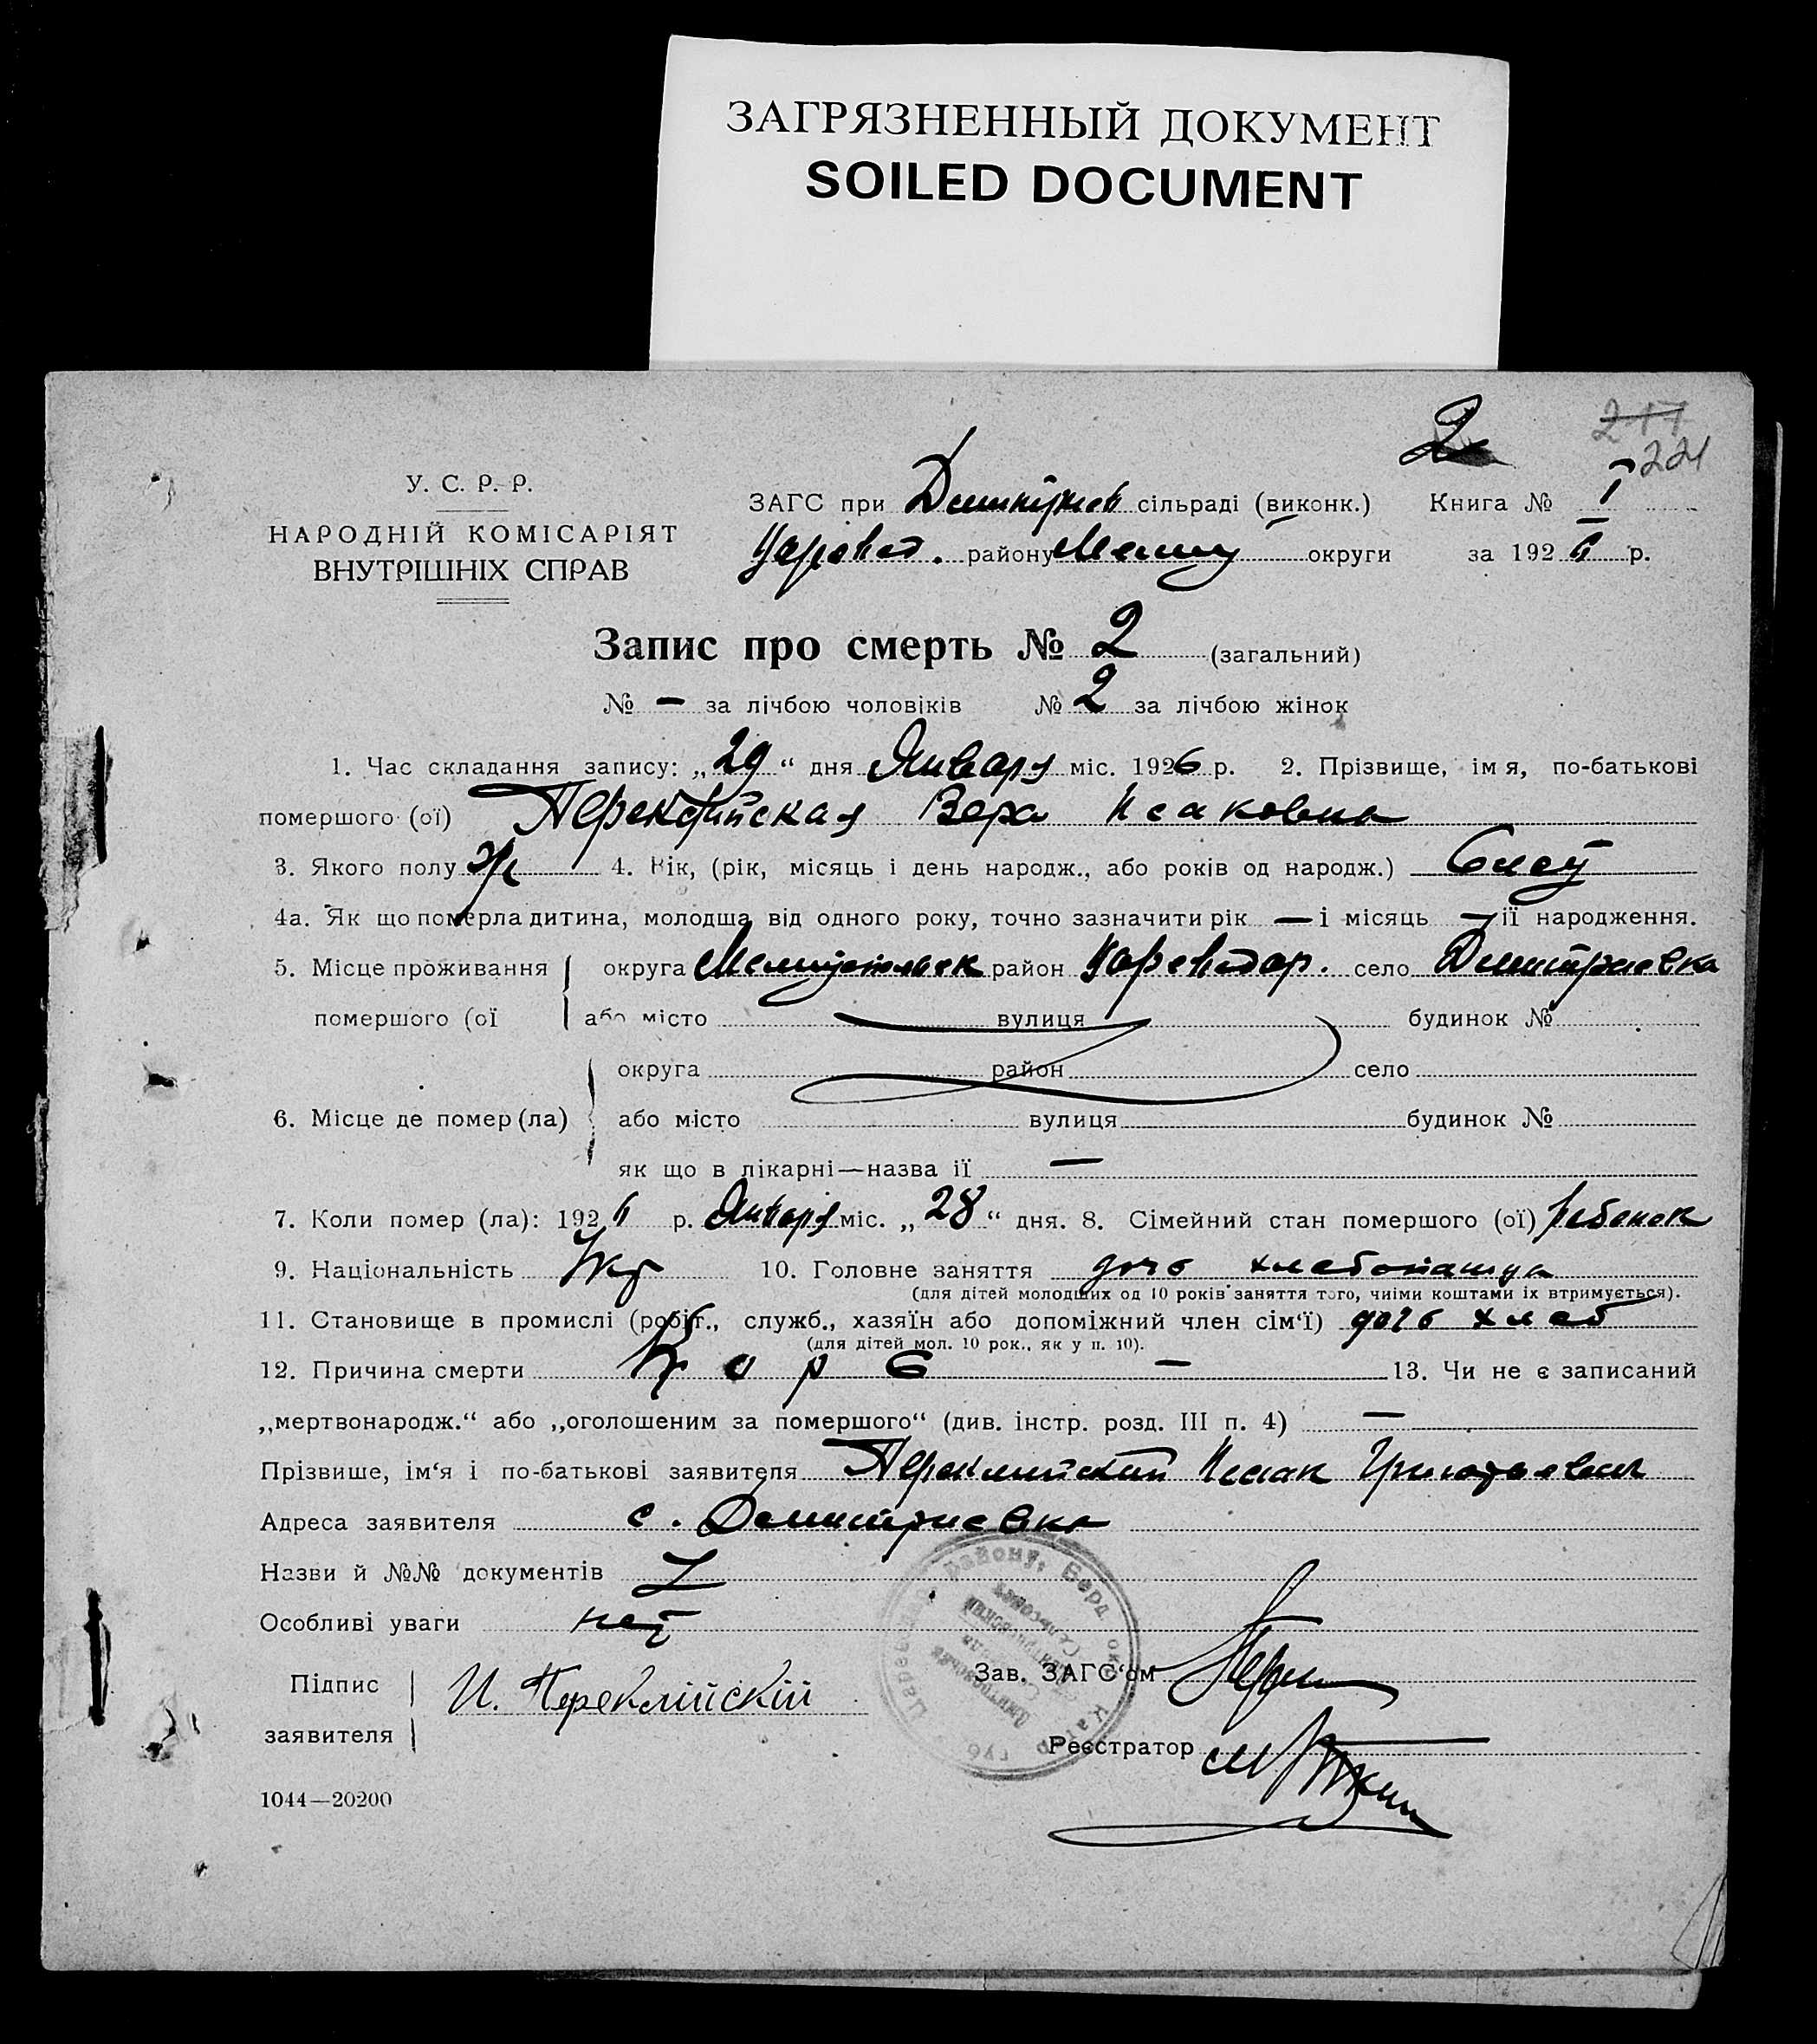 ЗАГРЯЗНЕННЫЙ ДОКУМЕНТ
SOILED DOCUMENT
2
217
221
У. С. Р. Р.
НАРОДНІЙ КОМІСАРІЯТ
ВНУТРІШНІХ СПРАВ
ЗАГС при сільраді (виконк.) Книга № I
району округи за 1926 р.
Запис про смерть № 2 (загальний)
№ — за лічбою чоловіків № 2 за лічбою жінок
1. Час складання запису: „29“ дня Января міс. 1926 р. 2. Прізвище, імя, по-батькові
помершого (ої) Вера Исаковна
3. Якого полу ж 4. Вік, (рік, місяць і день народж., або років од народж.)
4а. Як що померла дитина, молодша від одного року, точно зазначити рік — і місяць — її народження.
5. Місце проживання округа Мелитопольск район село Дмитриевка
помершого (ої або місто вулиця будинок №
округа район село
6. Місце де помер (ла) або місто вулиця будинок №
як що в лікарні—назва її —
7. Коли помер (ла): 1926 р. Января міс. „28“ дня. 8. Сімейний стан помершого (ої) ребенок
9. Національність Укр 10. Головне заняття дочь хлебопашца
(для дітей молодших од 10 років заняття того, чиїми коштами їх втримується).
11. Становище в промислі (робіт., служб., хазяїн або допоміжний член сім‘ї) дочь хлеб
(для дітей мол. 10 рок., як у п. 10).
12. Причина смерти Корь — 13. Чи не є записаний
„мертвонародж.“ або „оголошеним за помершого“ (див. інстр. розд. III п. 4) —
Прізвише, ім‘я і по-батькові заявителя Исак Григорьевич
Адреса заявителя с. Дмитриевка
Назви й №№ документів
Особливі уваги нет
Підпис
заявителя И. Переклійскій
Зав. ЗАГС‘ом
Реєстратор
району, Берд
1044—20200